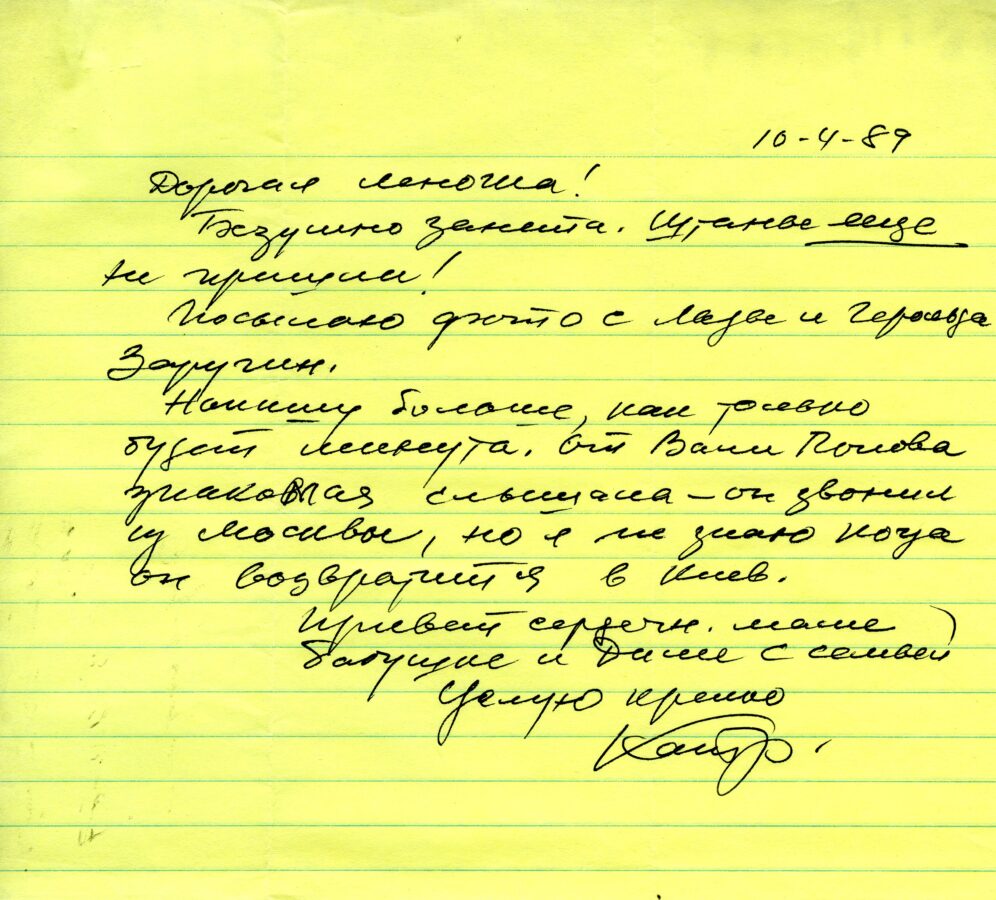 10-4-89
Дорогая Леноша!
Безумно занята. Штаны еще
не пришли!
Посылаю фото с
Заругин.
Напишу больше, как только
будет минута. От Вани Попова
знаковая слышала – он звонил
из Москвы, но я не знаю когда
он возвратится в Киев.
Привет сердечн. маме
бабушке и Диме с семьей
Целую крепко